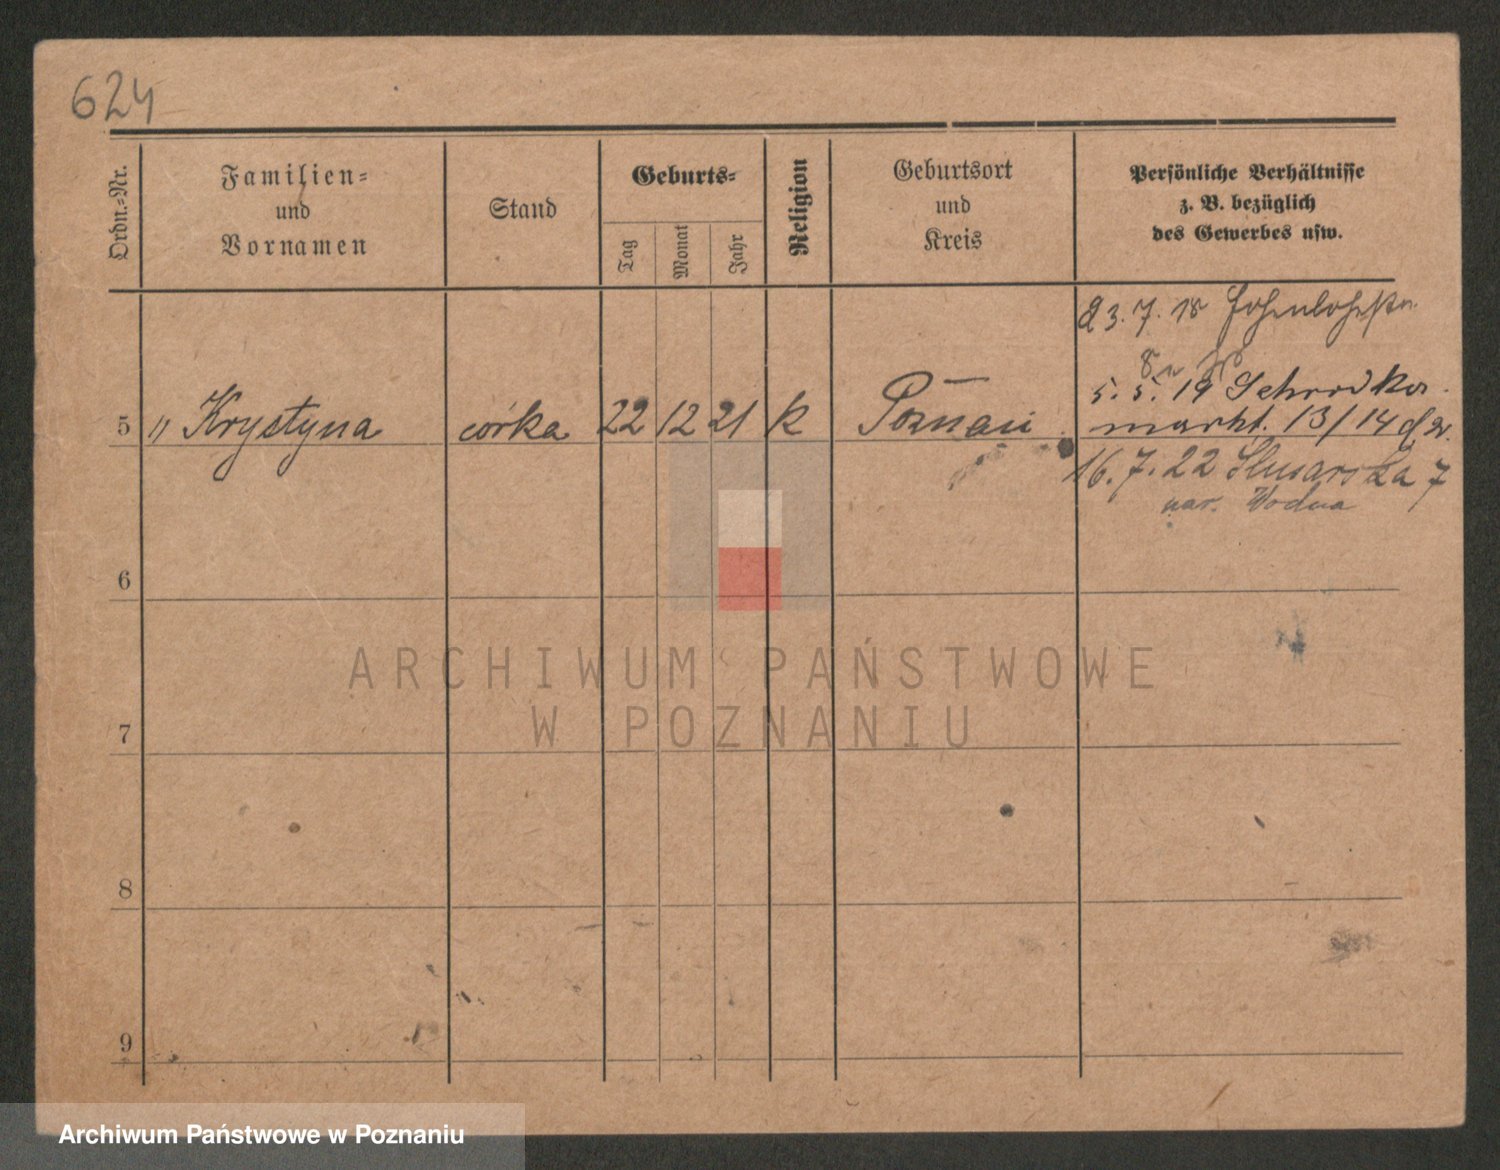 624
Ordn.-Nr.
Familien-
und
Vornamen
Stand
Geburts-
Tag
Monat
Jahr
Religion
Geburtsort
und
Kreis
Persönliche Verhältnisse
z. B. bezüglich
des Gewerbes usw.
23.7.18 Hohenlohestr.
5 " Krystyna córka 22 12 21 k Poznań
5.5.19
markt. 13/14
16.7.22 Ślusarska 7
nar. Wodna
6
7
8
9
ARCHIWUM PAŃSTWOWE
W POZNANIU
Archiwum Państwowe w Poznaniu